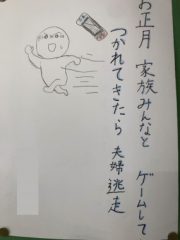 お正月 家族みんなと ゲームして
つかれてきたら 夫婦逃走